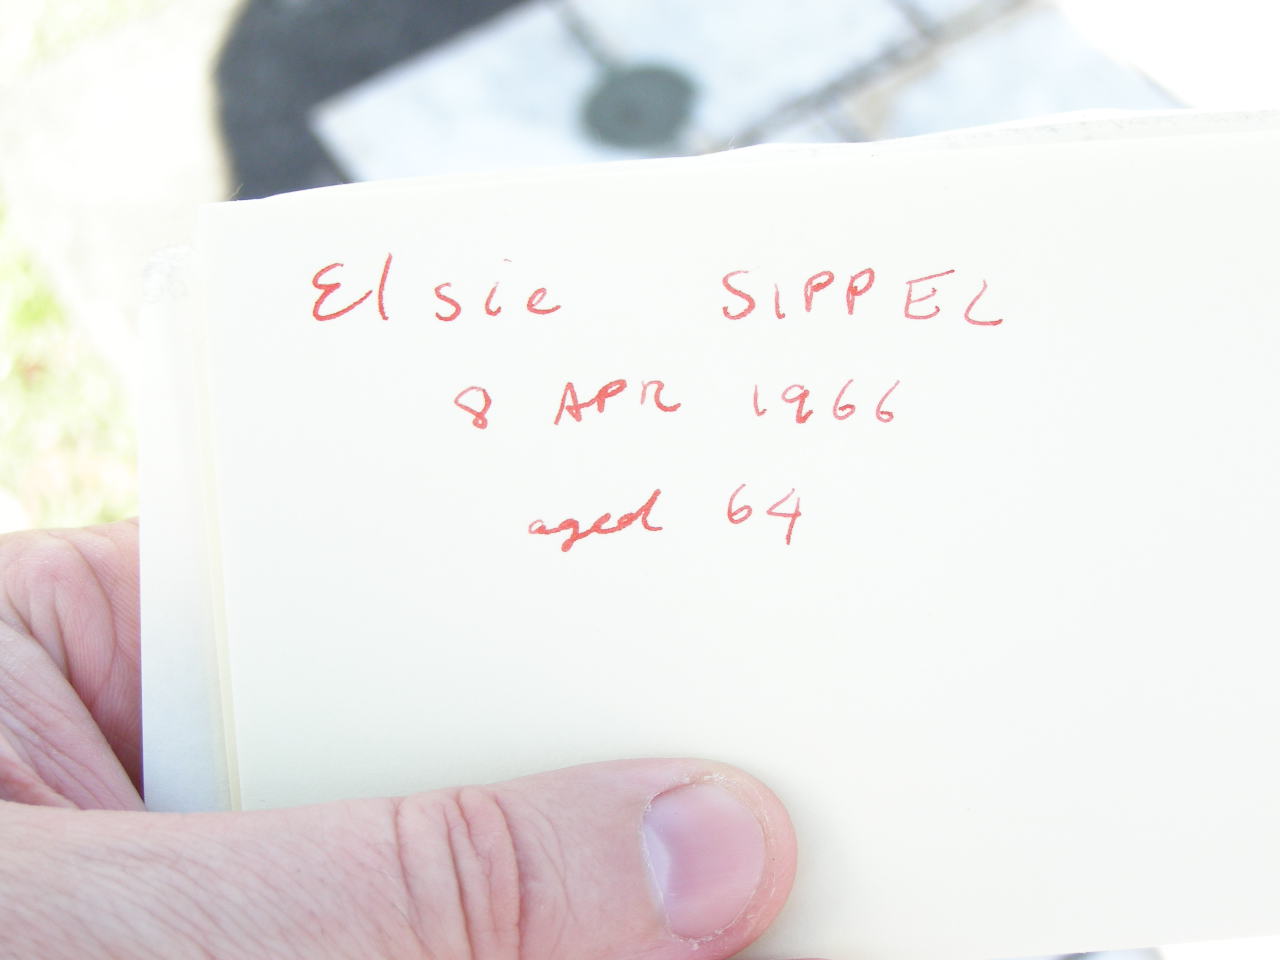 Elsie SIPPEL
8 APR 1966
aged 64